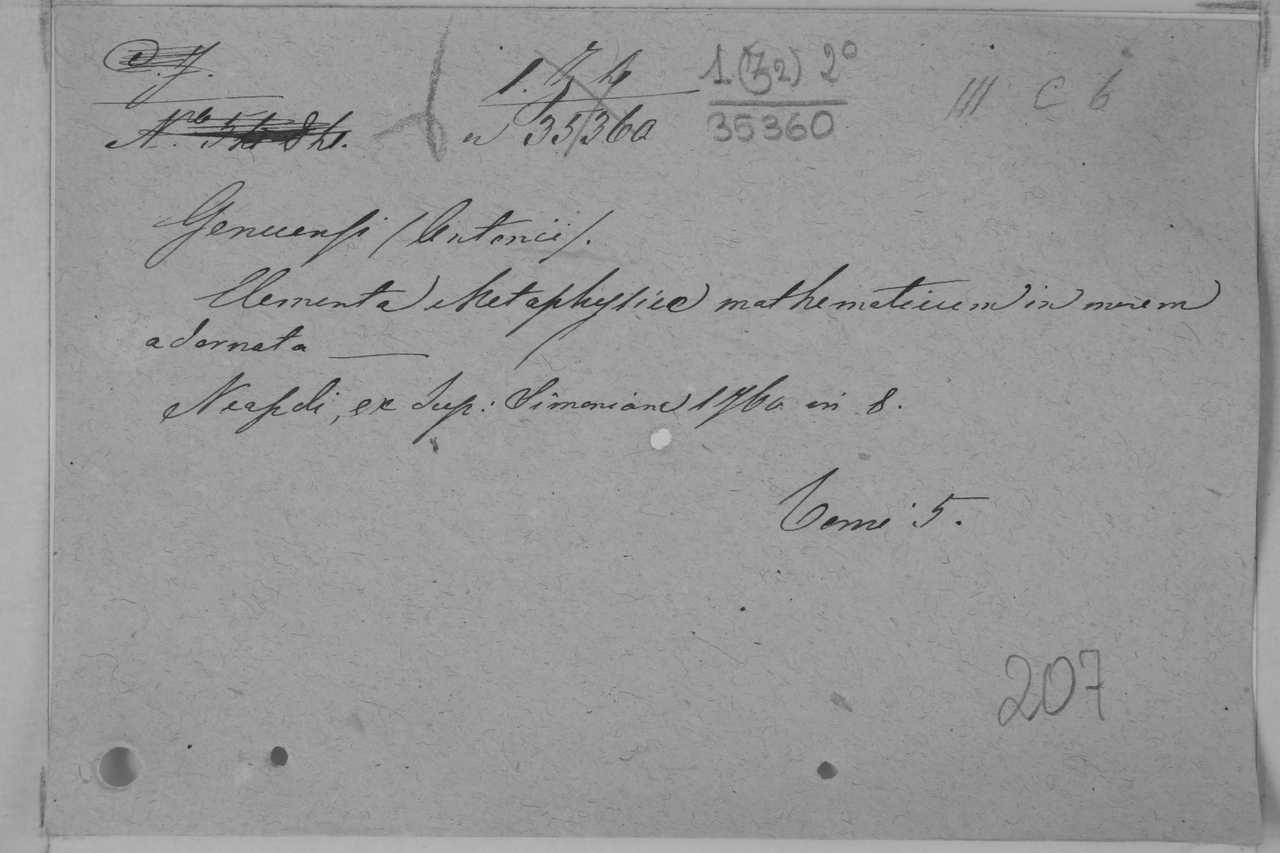 1. 7. 4
n 35360
1 (72) 2°
35360
III C 6
Genuensi (Antonii).
Elementa Metaphysicæ mathematicum in morem
adornata —
Neapoli, ex typ: Simoniana 1760 in 8.
Tomi 5.
207